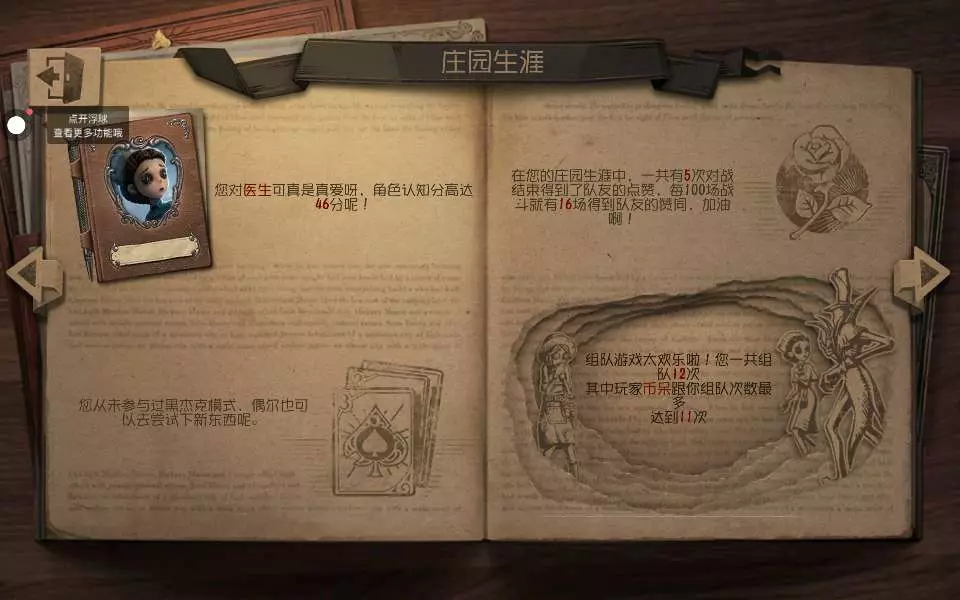 庄园生涯
点开浮球
查看更多功能哦
您对医生可真是真爱呀，角色认知分高达
46分呢！
您从未参与过黑杰克模式，偶尔也可
以去尝试下新东西呢。
在您的庄园生涯中，一共有5次对战
结束得到了队友的点赞，每100场战
斗就有16场得到队友的赞同，加油
啊！
组队游戏太欢乐啦！您一共组
队12次
其中玩家币呆跟你组队次数最
多
达到11次